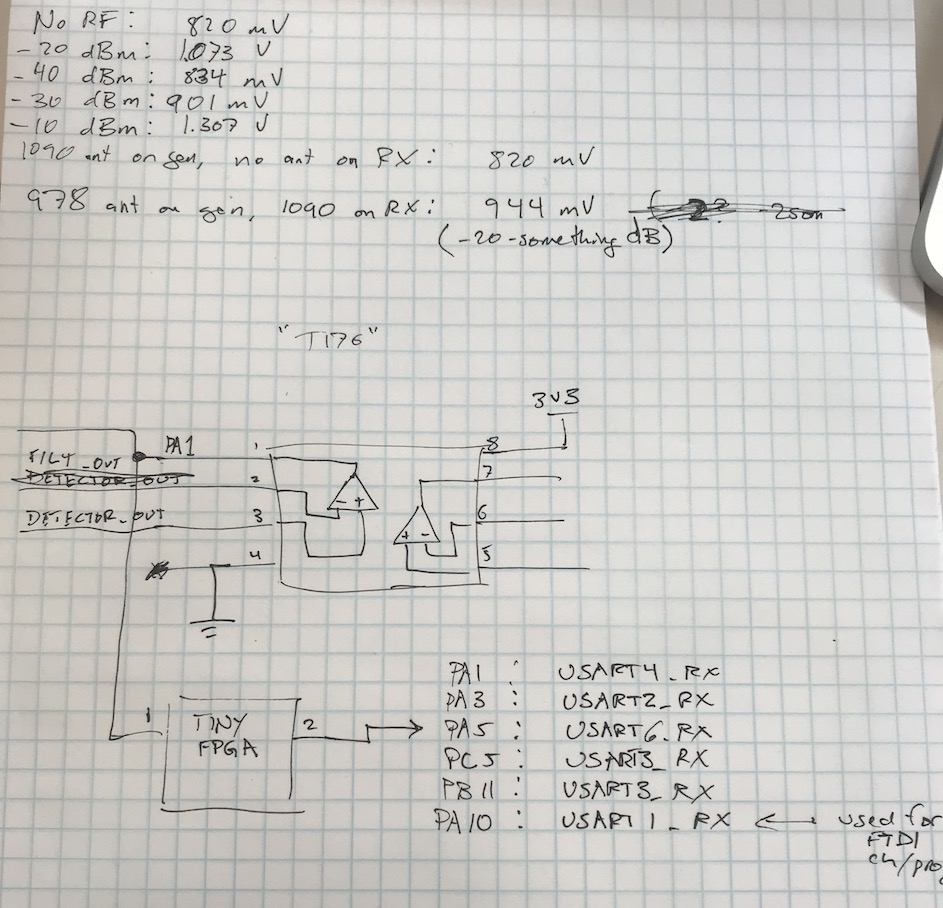 No RF: 820 mV
-20 dBm: 1.073 V
-40 dBm: 834 mV
-30 dBm: 901 mV
-10 dBm: 1.307 V
1090 ant on gen, no ant on RX: 820 mV
978 ant on gen, 1090 on RX: 944 mV
(-20-something dB)
"T176"
3V3
PA1 1 8
FILT_OUT
DETECTOR_OUT 2 7
- +
DETECTOR_OUT 3 6
+ -
4 5
1 TINY FPGA 2
PA1 : USART4_RX
PA3 : USART2_RX
PA5 : USART6_RX
PC5 : USART3_RX
PB11 : USART3_RX
PA10 : USART1_RX ← used for
FTDI
ch/pro